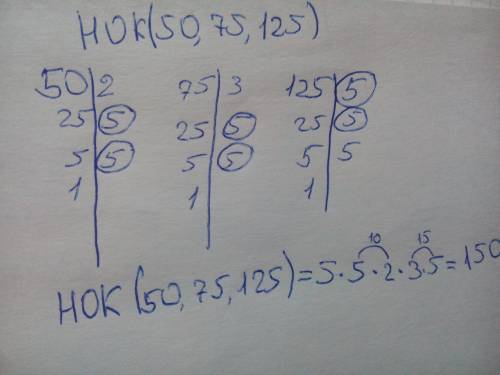 НОК(50, 75, 125)
50|2 75|3 125|5
25|5 25|5 25|5
5|5 5|5 5|5
1| 1| 1|
10 15
НОК (50, 75, 125) = 5·5·2·3·5 = 150